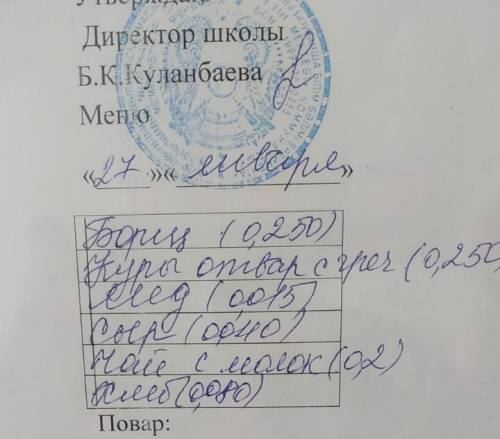 Утверждаю
Директор школы
Б.К.Куланбаева
Меню
«27»« января»
Борщ (0,250)
Куры отвар с греч (0,250
Мёд (0,015)
Сыр (0,040)
Чай с молок (0,2)
Хлеб (0,080)
Повар: